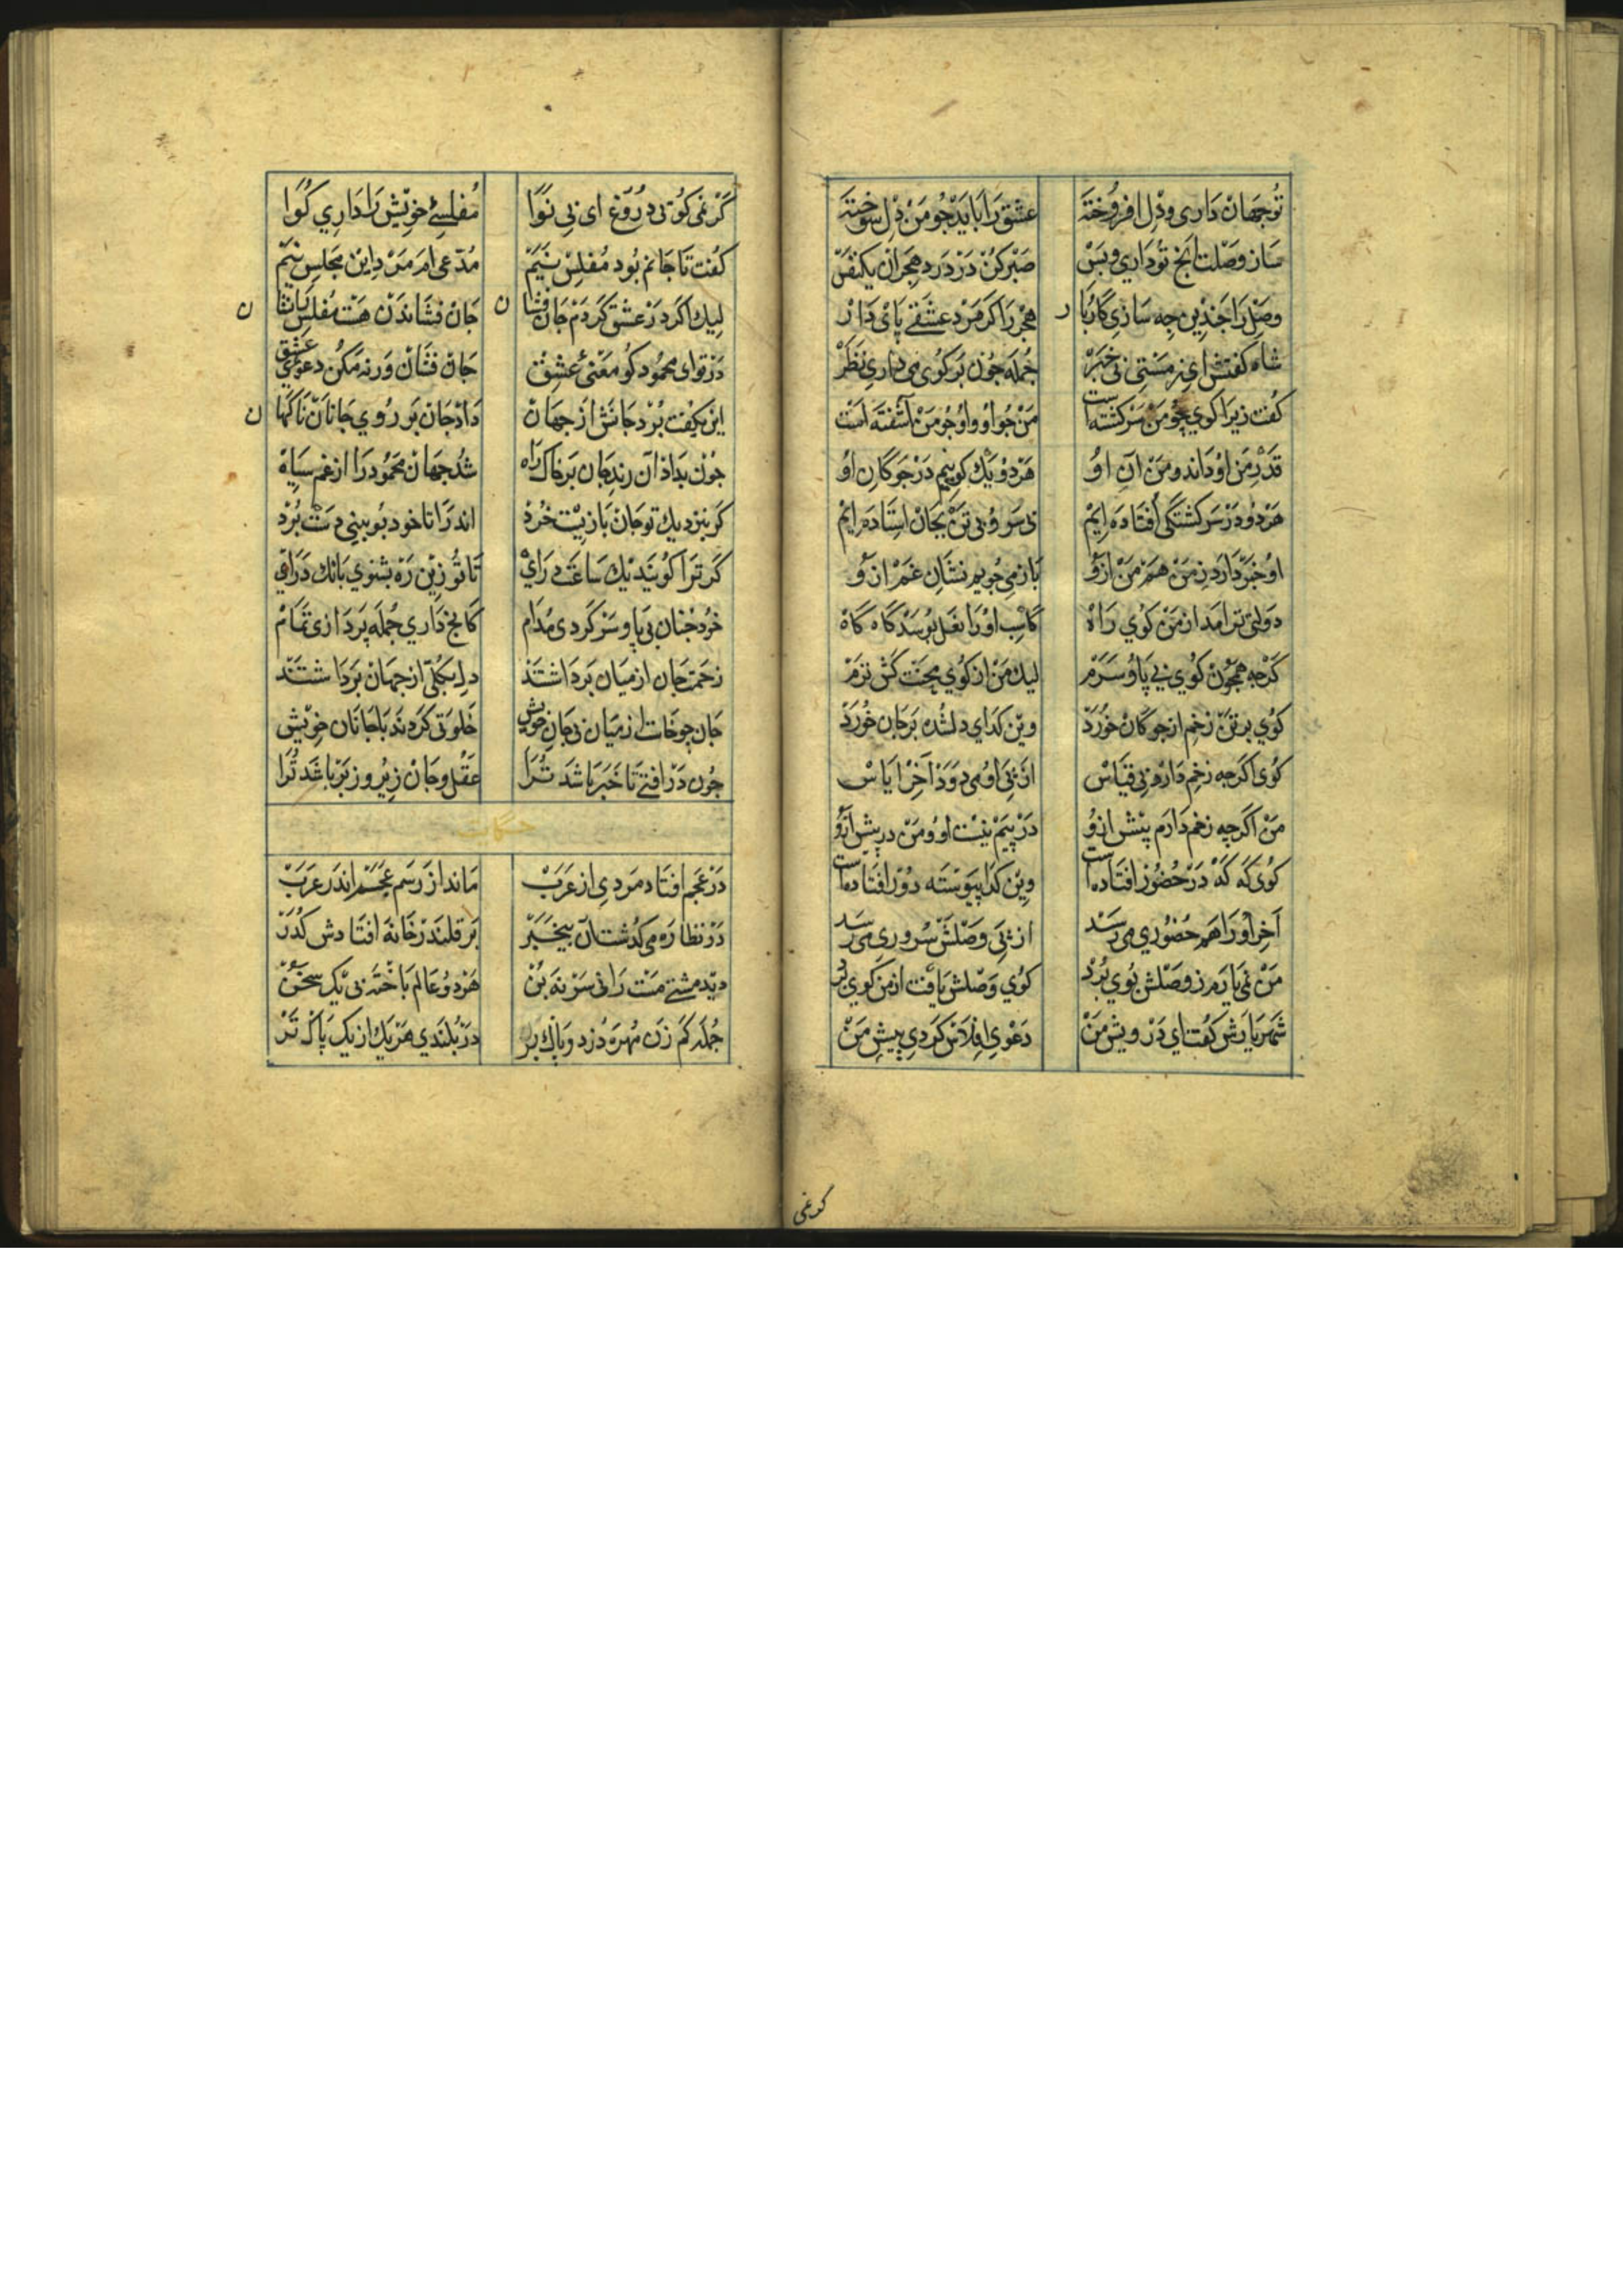 تُو جهان داری و دل افروخته عشق را باید چو من دل سوخته
ساز وصلت انج تو داری و بس صبر کن در درد هجران یکنفس
وصل را جندین چه سازی کار و بار هجر را کر مرد عشقی پای دار
شاه کفتش ای ز مستی بی خبر جمله جون بر کوی می داری نظر
کفت زیرا کوی چو من سرکشته است من جو او و او جو من آشفته است
قدر من او داند و من آن او هر دو یک کوییم در جوکان او
هر دو در سرکشتکی افتاده ایم بی سر و بی تن بجان استاده ایم
او خبر دارد ز من هم من ازو باز می جویم نشان غم ازو
دولتی تر امد از من کوی راه کاسب او را نعل بوسد کاه کاه
کرجه همچون کوی بی پا و سرم لیک من از کوی محنت کش ترم
کوی بر تن زخم از جوکان خورد وین کدای دلشده بر جان خورد
کوی اکرجه زخم دارد بی قیاس از پی او می دود آخر ایاس
من اکرچه زخم دارم پیش ازو در پیم نیست او و من در پیش ازو
کوی که که در حضور افتاده است وین کدا پیوسته دور افتاده است
آخر او را هم حضوری می رسد از پی وصلش سروری می رسد
من نمی یارم ز وصلش بوی برد کوی وصلش یافت از من کوی برد
شهریارش کفت ای درویش من دعوی افلاس کردی پیش من
کرنمی
کر نمی کوئی دروغ ای بی نوا مفلسئ خویش را داری کوا
کفت تا جانم بود مفلس نیم مدعی ام من درین مجلس نیم
لیک اکر در عشق کردم جان فشان جان فشاندن هست مفلس را نشان
در تو ای محمود کو معنئ عشق جان فشان ور نه مکن دعوئ عشق
این بکفت برد جانش از جهان داد جان بر روی جانان ناکهان
جون بداد آن رند جان بر خاک راه شد جهان محمود را از غم سیاه
کر بنزدیک تو جان بازیست خرد اندرا تا خود ببینی دست برد
کر ترا کویند یک ساعت درای تا تو زین ره بشنوی بانک درای
خرد جنان بی پا و سر کردی مدام کانج داری جمله پردازی تمام
زحمت جان از میان برداشتند دل بکلی از جهان برداشتند
جان چو خاست از میان بی جان خویش خلوتی کردند با جانان خویش
جون درافتی تا خبر باشد ترا عقل و جان زیر و زبر باشد ترا
حکایت
در عجم افتاد مردی از عرب ماند از رسم عجم اندر عرب
در نظاره می کذشت آن بیخبر بر قلندر خانه افتادش کذر
دید مشتی مست را نی سر نه بن هر دو عالم باخته بی یک سخن
جمله کم زن مهره دزد و پاک بر در بلندی هر یک از یک پاک تر